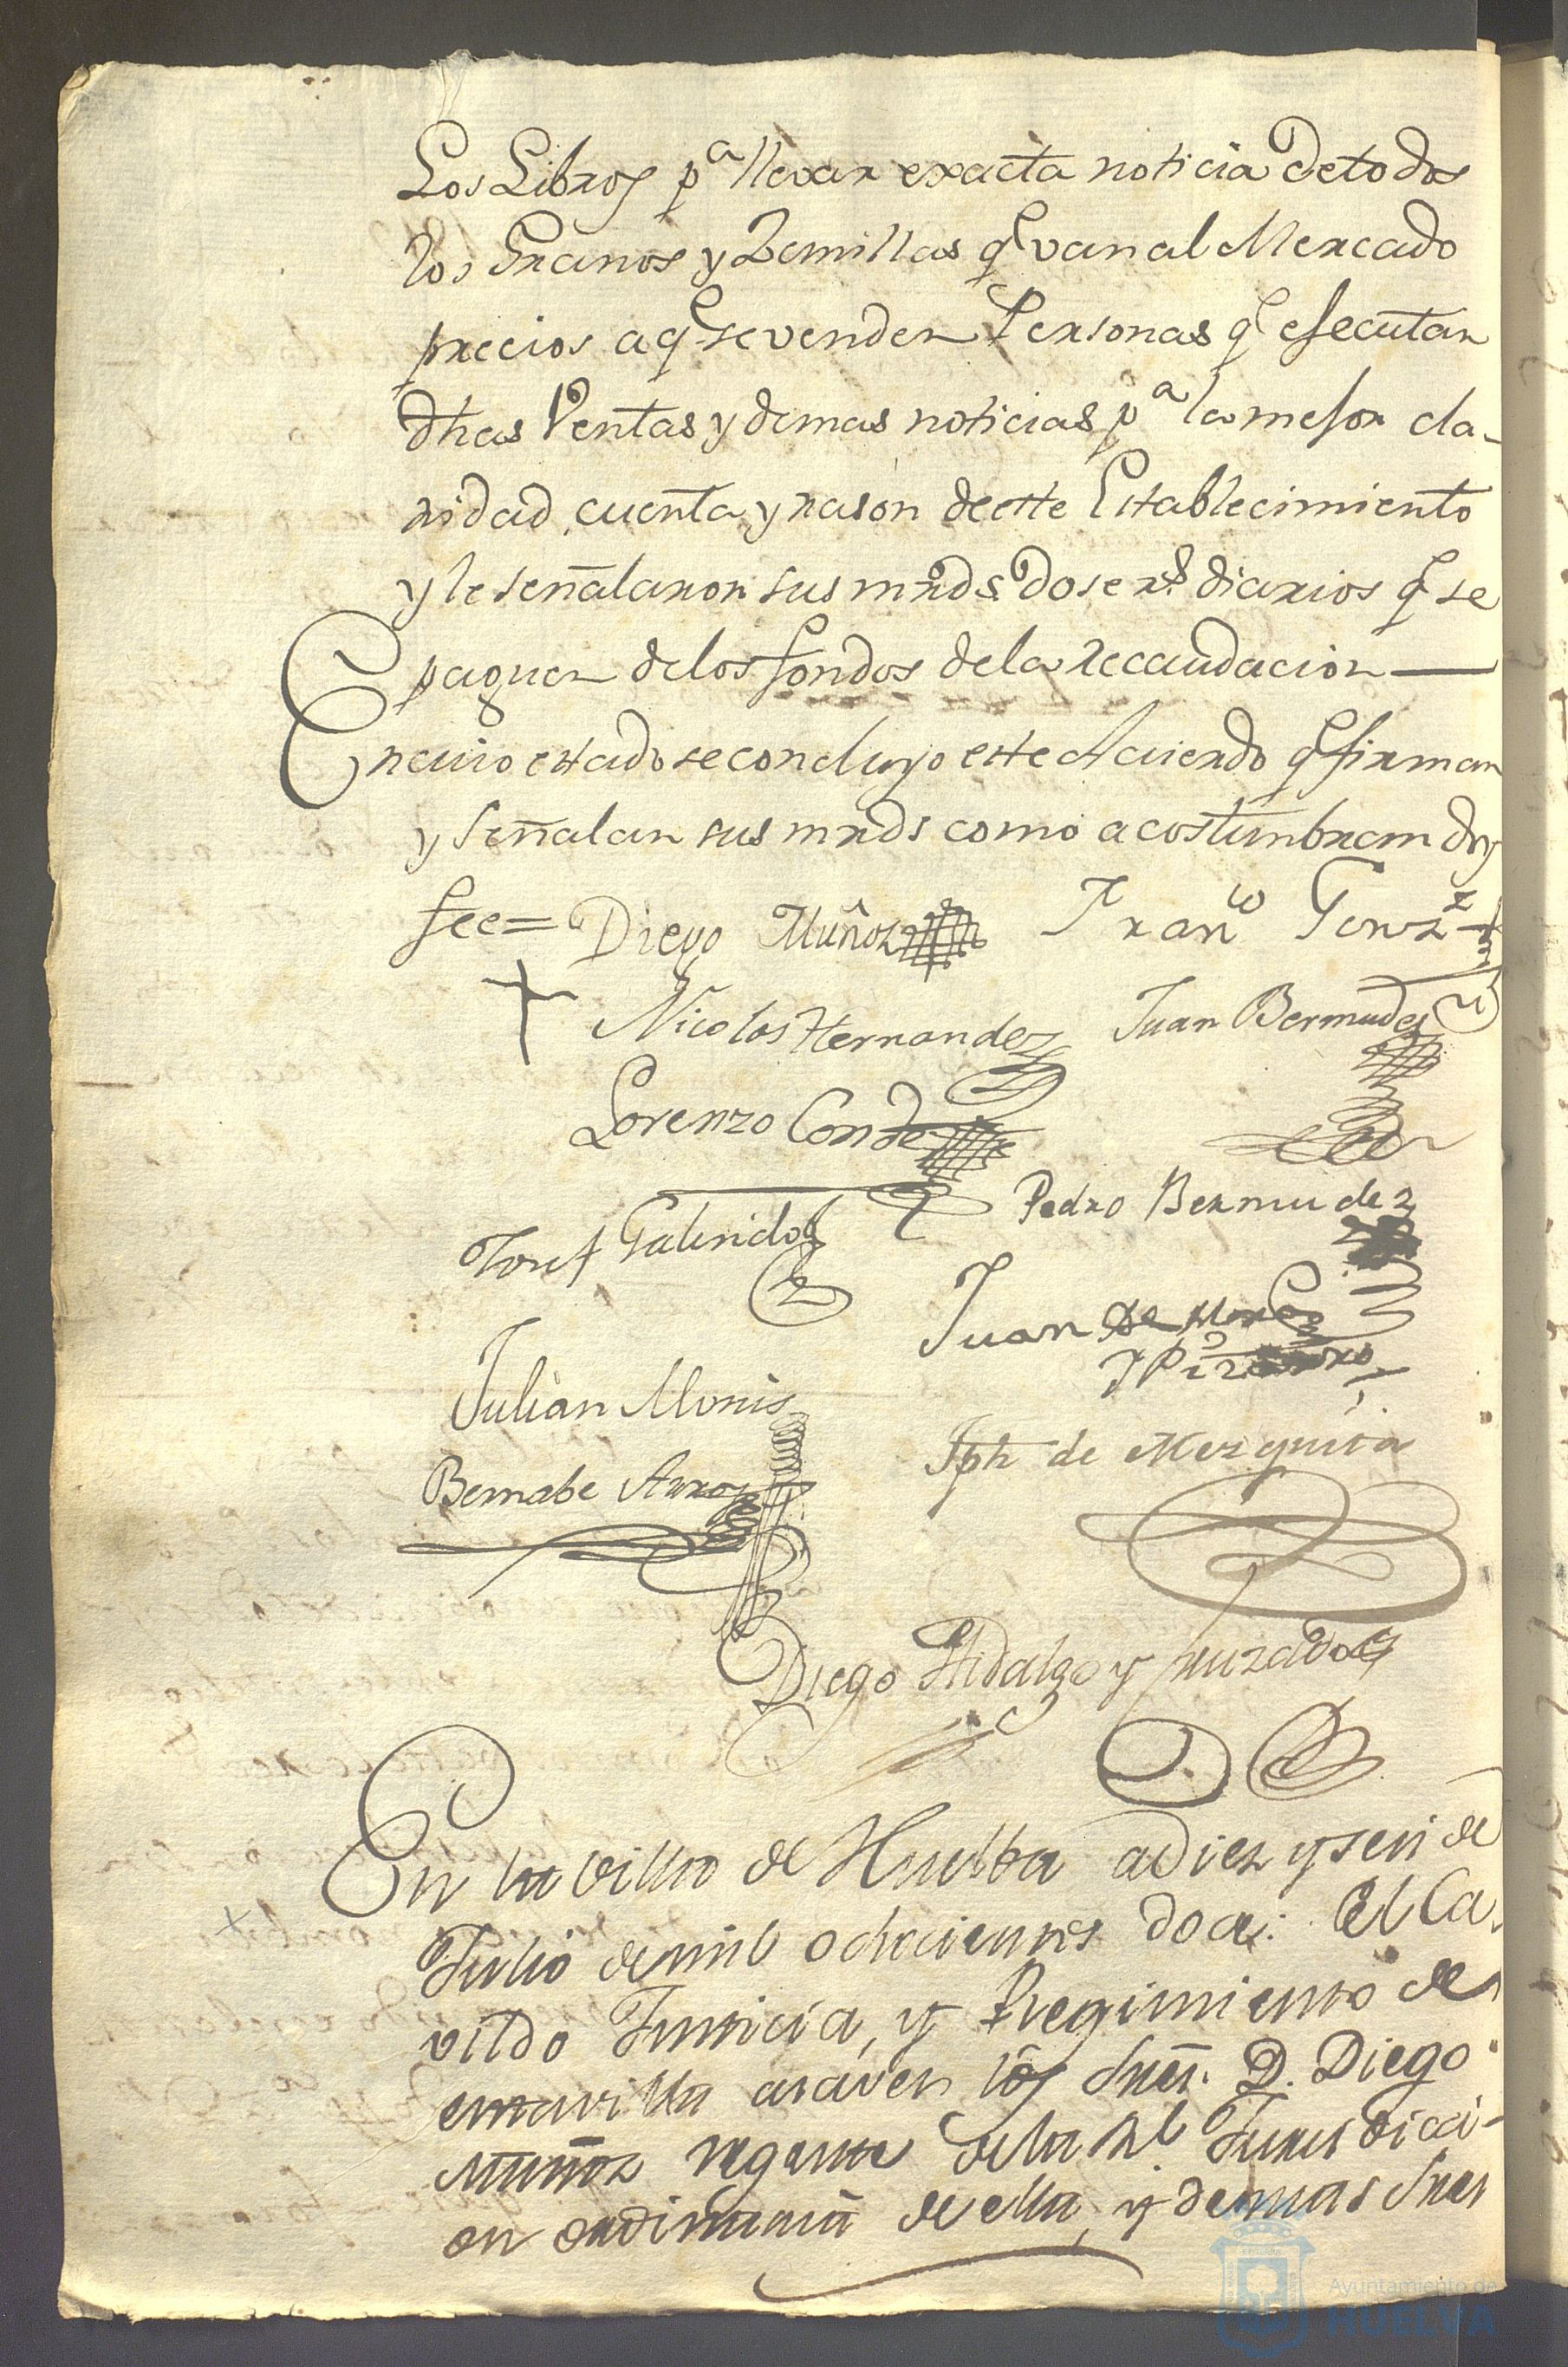 Los Libros pª llevar exacta noticia de todos
los Granos y Zemillas q.e van al Mercado
precios a q.e se venden Personas q.e efecutan
dhas Ventas y demas noticias pª la mefor cla-
ridad, cuenta y rason de este Establecimiento
y le señalaron sus mrds. dose r.s diarios q.e se
paguen de los fondos de la recaudacion
En cuio estado se concluyo este Acuerdo q.e firman
y señalan sus mrds como acostumbram doy
fee= Diego Muñoz Fran.co Gonz.z
Nicolas Hernandez Juan Bermudez
Lorenzo Conde
Josef Galindo Pedro Bermudez
Juan de
Julian Monis
Jph de Mezquita
Bernabe
Diego Hidalgo y
En la villa de Huelba a diez y seis de
Julio de mil ochocientos doce: El Ca-
vildo Justicia, y Regimiento de
esta villa asaver los Sres. D. Diego
Muñoz regente de la Rl. Jurisdicci-
on ordinaria de ella, y demas Sres
Ayuntamiento de
HUELVA